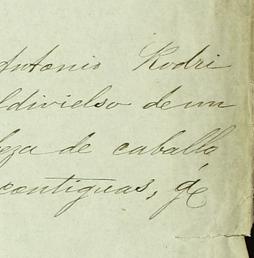 Antonio Rodri
ldivielso de un
eza de caballo
contiguas, q͛e